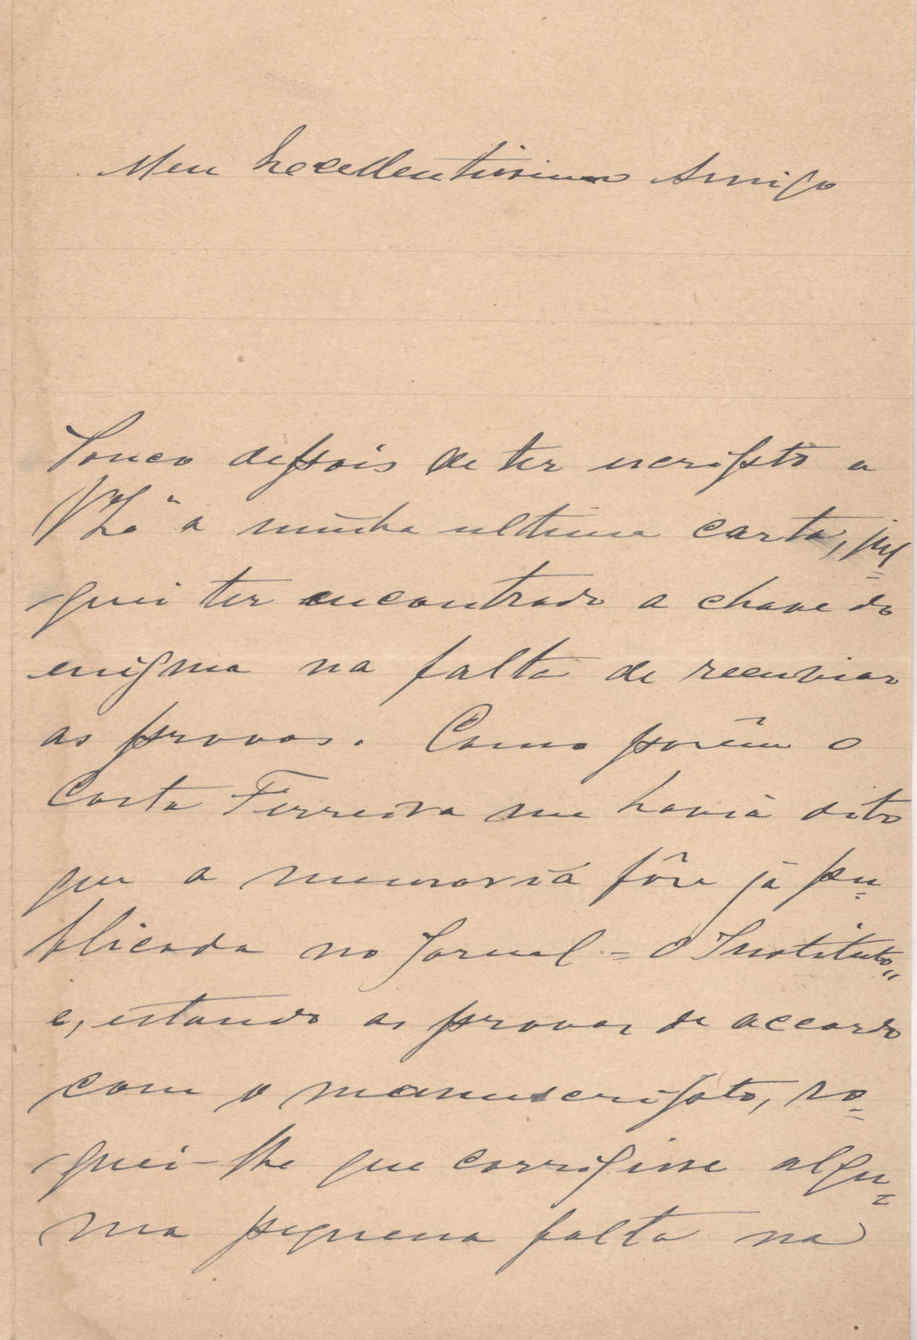 Meu Excellentissimo Amigo
Pouco depois de ter escripto a
V. Ex.ª a minha ultima carta, jul=
guei ter encontrado a chave do
enigma na falta de reenviar
as provas. Como porêm o
Costa Ferreira me havia dito
que a memoria fôra já pu=
blicada no Jornal = O Instituto"
e, estando as provas de accordo
com o manuscripto, ro=
guei-lhe que corrigisse algu=
ma pequena falta na